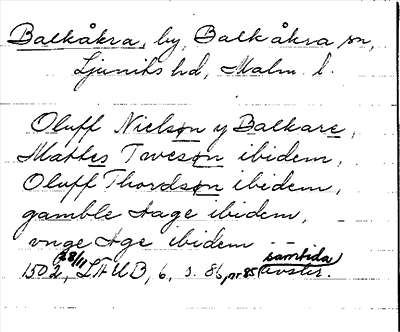 Balkåkra, by, Balkåkra sn,
Ljunits hd, Malm. l.
Oluff Nielsøn y Balkare,
Mattes Tweson ibidem,
Oluff Thordsøn ibidem,
gamble Aage ibidem,
vnge Age ibidem - -
1502 28/11, LÄUB, 6, s. 86, nr 85 samtida avskr.